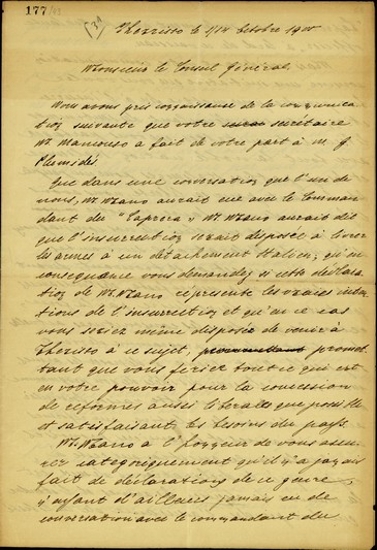 177
Therisso le 1/14 Octobre 190
Monsieur le Consul Général
Nous avons pris connaissance de la communica
tion suivante que votre secrétaire
Mr Mancuso a fait de votre part à M. J.
Plumidés
Que dans une conversation que l'un de
nous, Mr Mano aurait eue avec le Comman
dant du "Caprera" Mr Mano aurait dit
que l'insurrection serait disposée à livrer
les armes à un détachement Italien; qu'en
consequance vous demandez si cette déclara
tion de Mr Mano représente les vraies inten
tions de l'insurrection et qu'en ce cas
vous seriez même disposé de venir à
Therisso à ce sujet, promet
tant que vous feriez tout ce qui est
en votre pouvoir pour la concession
de réformes aussi liberales que possible
et satisfaisant les besoins du pays.
Mr Mano a l'honneur de vous assu
rer categoriquement qu'il n'a jamais
fait de déclarations de ce genre,
n'ayant d'ailleurs jamais eu de
conversation avec le commandant du